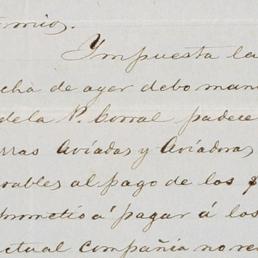 Ympuesta la
cha de ayer debo man
de la Na. Corral padece
rras Aviadas y Aviadoras
rables al pago de los
prometió á pagar á los
ctual compañia no re